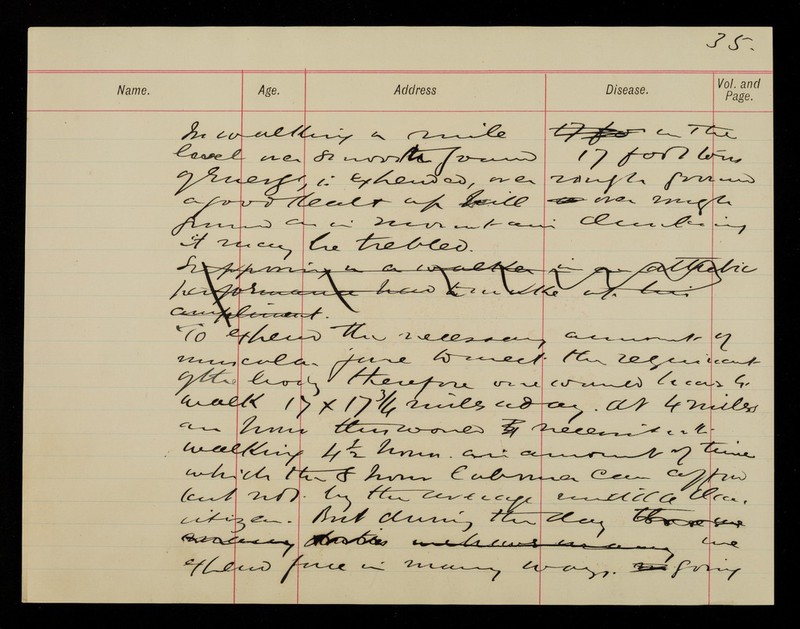 35.
Name. Age. Address Disease. Vol. and Page.
In walking a mile 17 fo on the
level over smooth ground 17 foot tons
of Energy, is expended, over rough ground
a good deal & up hill over rough
ground as in mountain climbing
it may be trebled.
Supposing a walker in an athletic
performance had to make up his
compliment.
To expend the necessary amount of
muscular force to meet the requirement
of the body therefore one would have to
walk 17 x 17 3/4 miles a day. At 4 miles
an hour this would necessitate
walking 4 1/2 hours. an amount of time
which the 8 hour labourer can afford
but not by the average middle class
citizen. But during the day
we
expend force in many ways. going